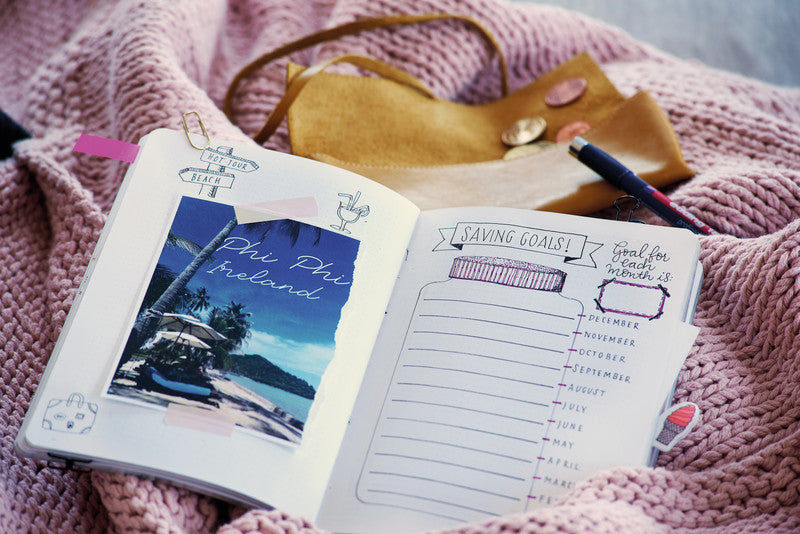 HOT TOUR
BEACH
Phi Phi
Ireland
SAVING GOALS!
Goal for
each
month is:
DECEMBER
NOVEMBER
OCTOBER
SEPTEMBER
AUGUST
JULY
JUNE
MAY
APRIL